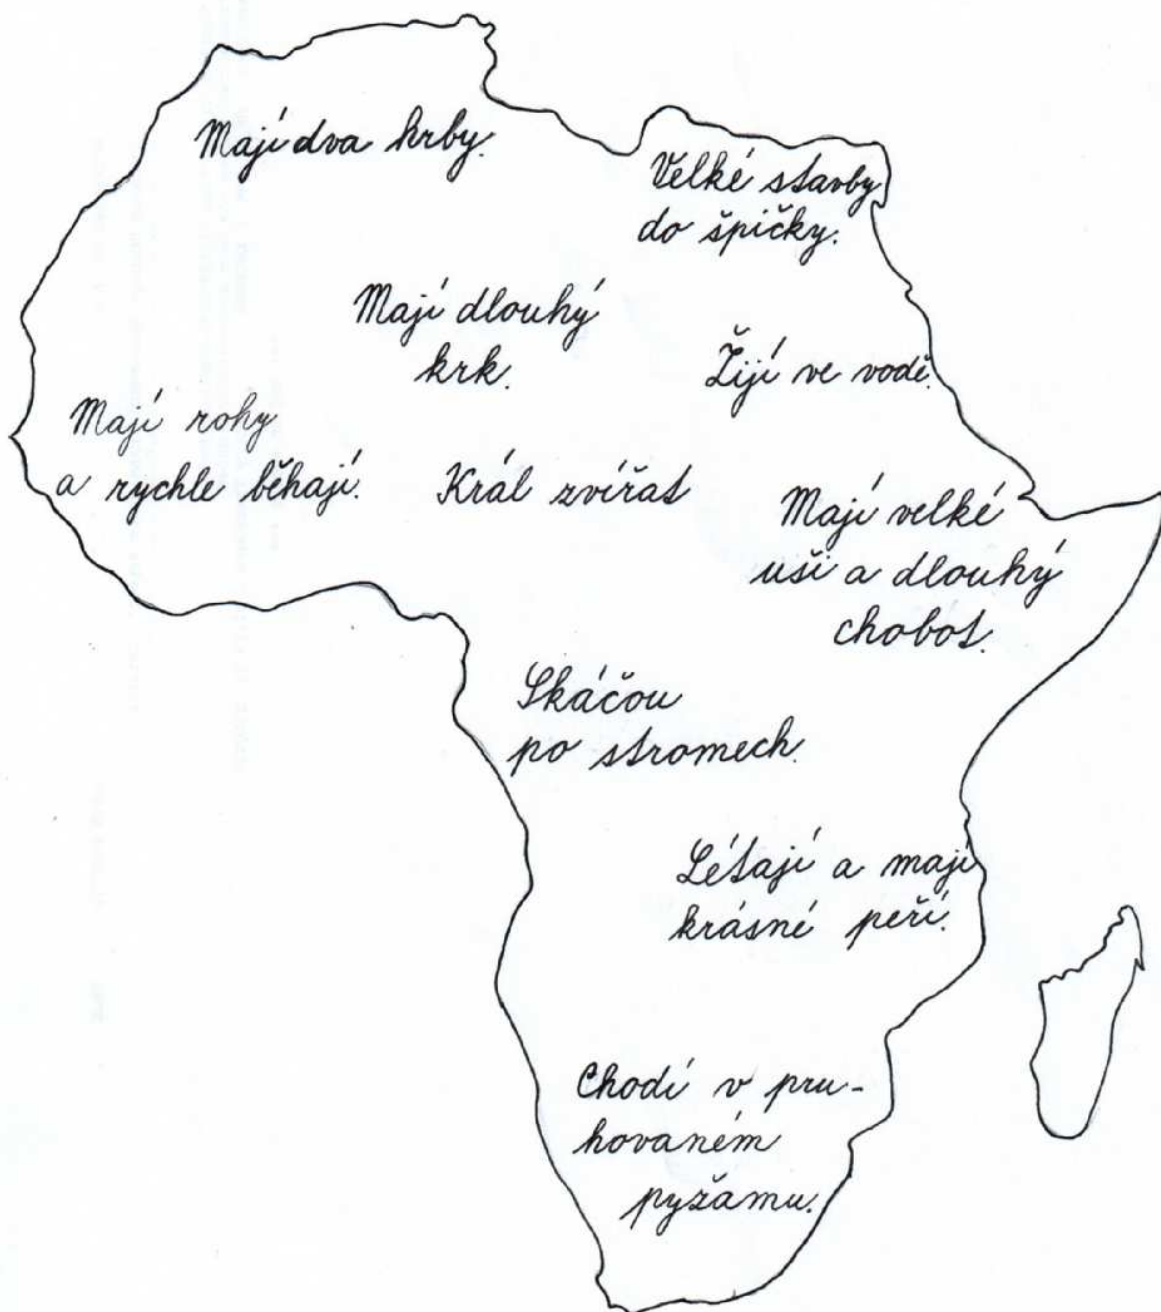 Mají dva hrby.
Velké stavby
do špičky.
Mají dlouhý
krk.
Žijí ve vodě.
Mají rohy
a rychle běhají.
Král zvířat
Mají velké
uši a dlouhý
chobot.
Skáčou
po stromech.
Létají a mají
krásné peří.
Chodí v pru-
hovaném
pyžamu.